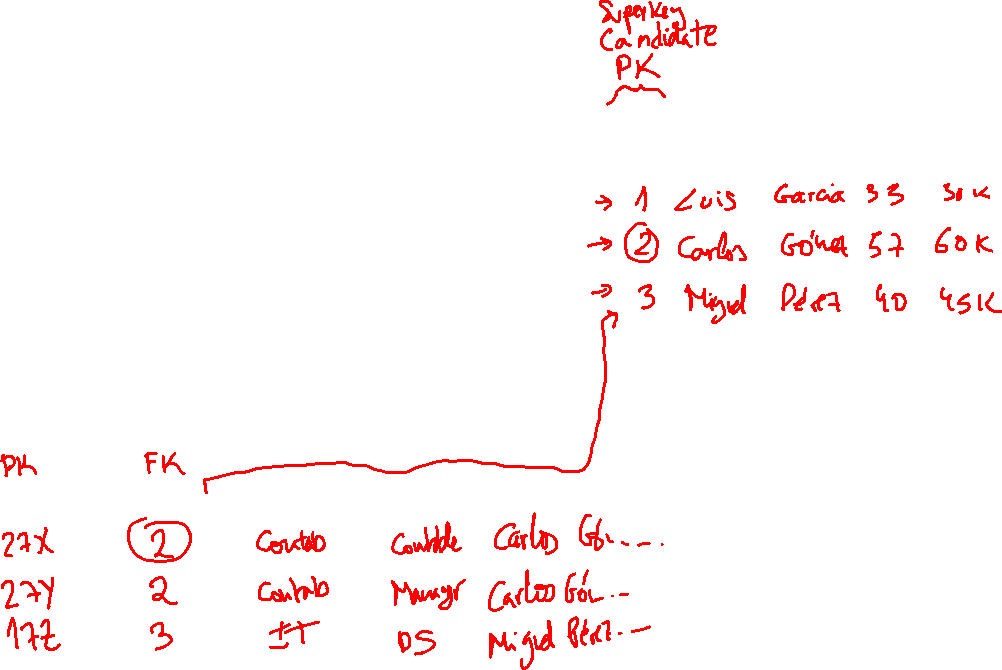 Superkey
Candidate
PK
→ 1 Luis Garcia 33 30K
→ 2 Carlos Gómez 57 60K
→ 3 Miguel Pérez 40 45K
PK FK
27X 2 Contab Contable Carlos Gó.....
27Y 2 Contab Manager Carlos Góm...
17Z 3 IT DS Miguel Pérez...